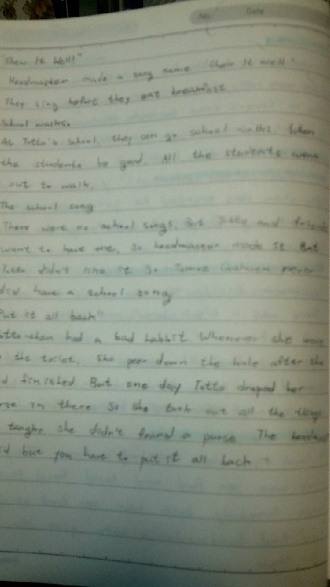 No. Date
"Chew It Well!"
Headmaster made a song name "Chew It Well"
They sing before they eat breakfast.
School walks
At Totto's school, they can go school walks. When
the students be good. All the students went
out to walk.
The school song
There were no school songs, But Totto and friends
want to have one, so headmaster made it But
Totto didn't like it So Tomoe never
did have a school song
"Put it all back"
Totto-chan had a bad habbit Whenever she went
to the toilet, she peer down the hole after she
finished But one day Totto droped her
purse in there So she took out all the things
she didn't found a purse The headmaster
said but you have to put it all back